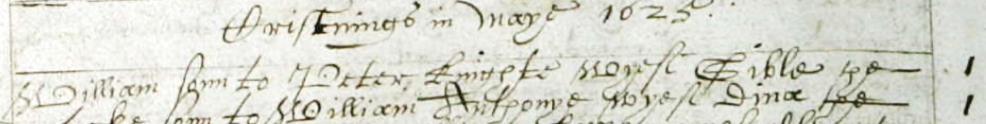 Cristnings in Maye 1625.
William sonn to Peter Knighte Wyef Sible the 1
sonn to William Anthonye Wyef Dina the 1